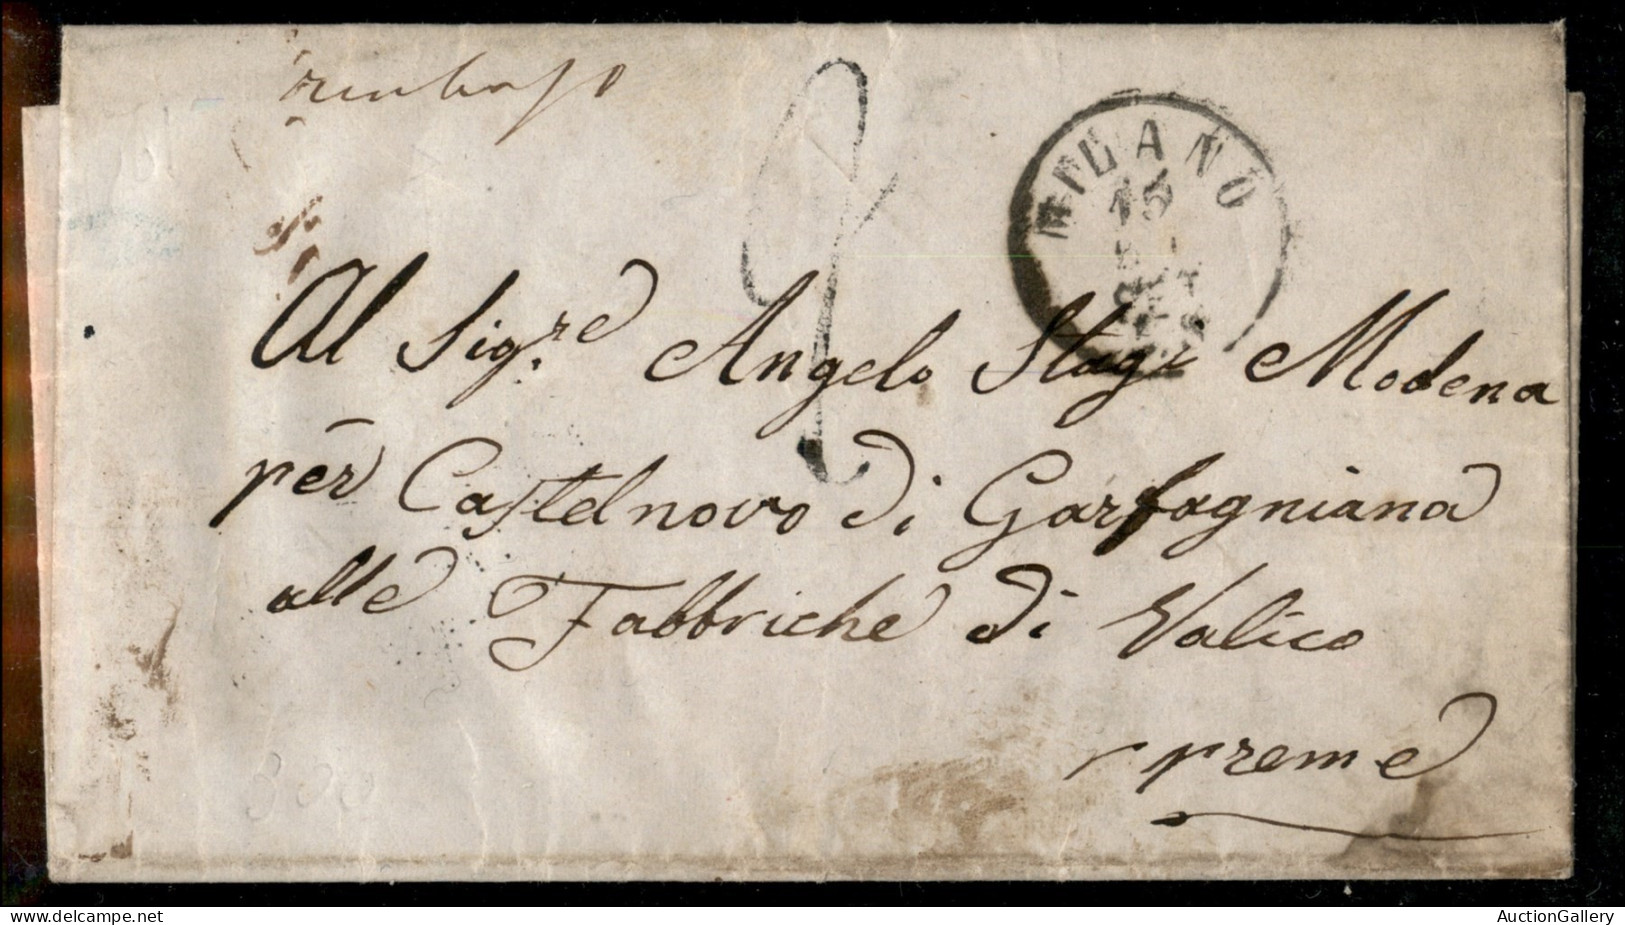 MILANO
15
Al Sig.re Angelo Stagi Modena
per Castelnovo di Garfagniana
alle Fabbriche di Valico
preme
300
AuctionGallery